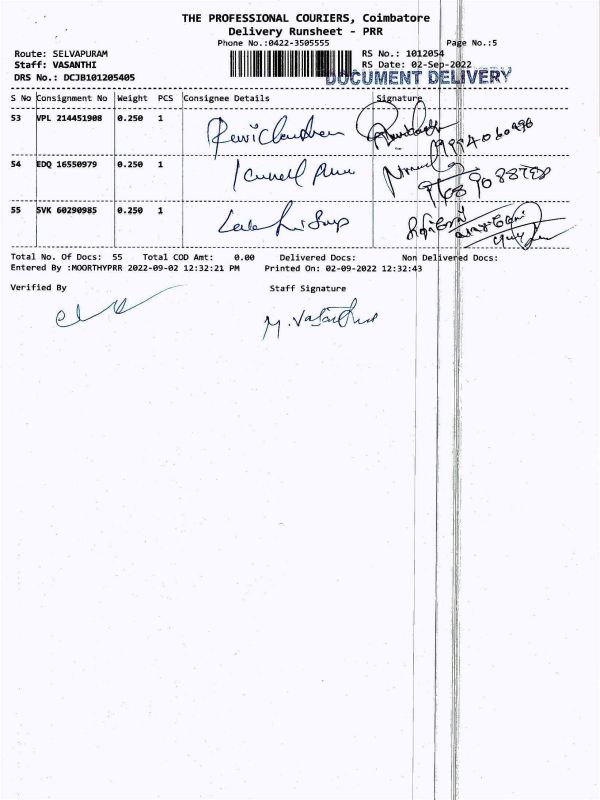 THE PROFESSIONAL COURIERS, Coimbatore
Delivery Runsheet - PRR
Phone No.:0422-3505555 Page No.:5
Route: SELVAPURAM RS No.: 1012054
Staff: VASANTHI RS Date: 02-Sep-2022
DRS No.: DCJB101205405 DOCUMENT DELIVERY
S No Consignment No Weight PCS Consignee Details Signature
53 VPL 214451908 0.250 1 Ravichandran
54 EDQ 16550979 0.250 1
55 SVK 60290985 0.250 1
Total No. Of Docs: 55 Total COD Amt: 0.00 Delivered Docs: Non Delivered Docs:
Entered By :MOORTHYPRR 2022-09-02 12:32:21 PM Printed On: 02-09-2022 12:32:43
Verified By Staff Signature
M. Vasanthi